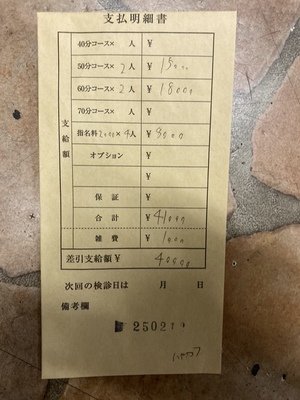 支払明細書
支給額
40分コース× 人 ¥
50分コース× 2人 ¥ 15000
60分コース× 2人 ¥ 18000
70分コース× 人 ¥
指名料2000×4人 ¥ 8000
オプション ¥
¥
保証 ¥
合計 ¥ 41000
雑費 ¥ 1000
差引支給額¥ 40000
次回の検診日は 月 日
備考欄
250219